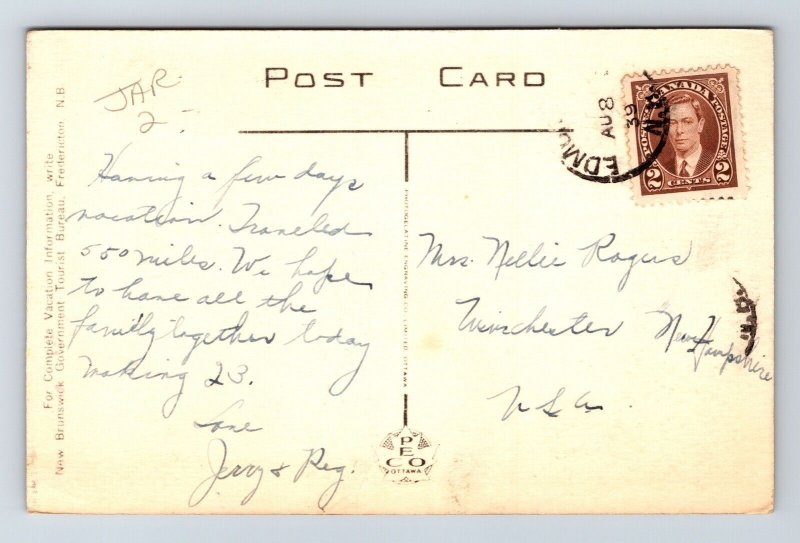 POST CARD
JAR
2
CANADA
POSTAGE POSTES
2 CENTS 2
EDMU
AU 8
39
N.B.
Having a few days
vacation. Traveled
550 miles. We hope
to have all the
family together today
making 23.
Love
Jerry & Reg.
Mrs. Nellie Rogers
Winchester New
Hampshire
U S A.
For Complete Vacation Information, write
New Brunswick Government Tourist Bureau, Fredericton, N.B.
PHOTOGELATINE ENGRAVING CO. LIMITED, OTTAWA
PECO
OTTAWA